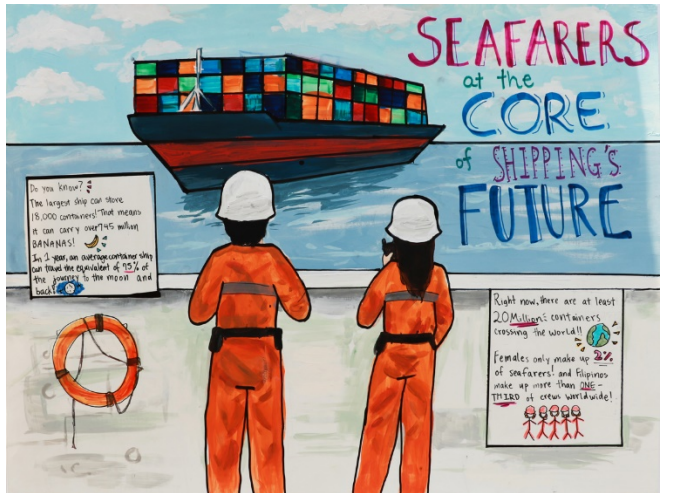 SEAFARERS
at the
CORE
of SHIPPING'S
FUTURE
Do you know?
The largest ship can store
18,000 containers! That means
it can carry over 745 million
BANANAS!
In 1 year, an average container ship
can travel the equivalent of 75% of
the journey to the moon and
back!
Right now, there are at least
20 Million± containers
crossing the world!!
Females only make up 2%
of seafarers! and Filipinos
make up more than ONE-
THIRD of crews worldwide!